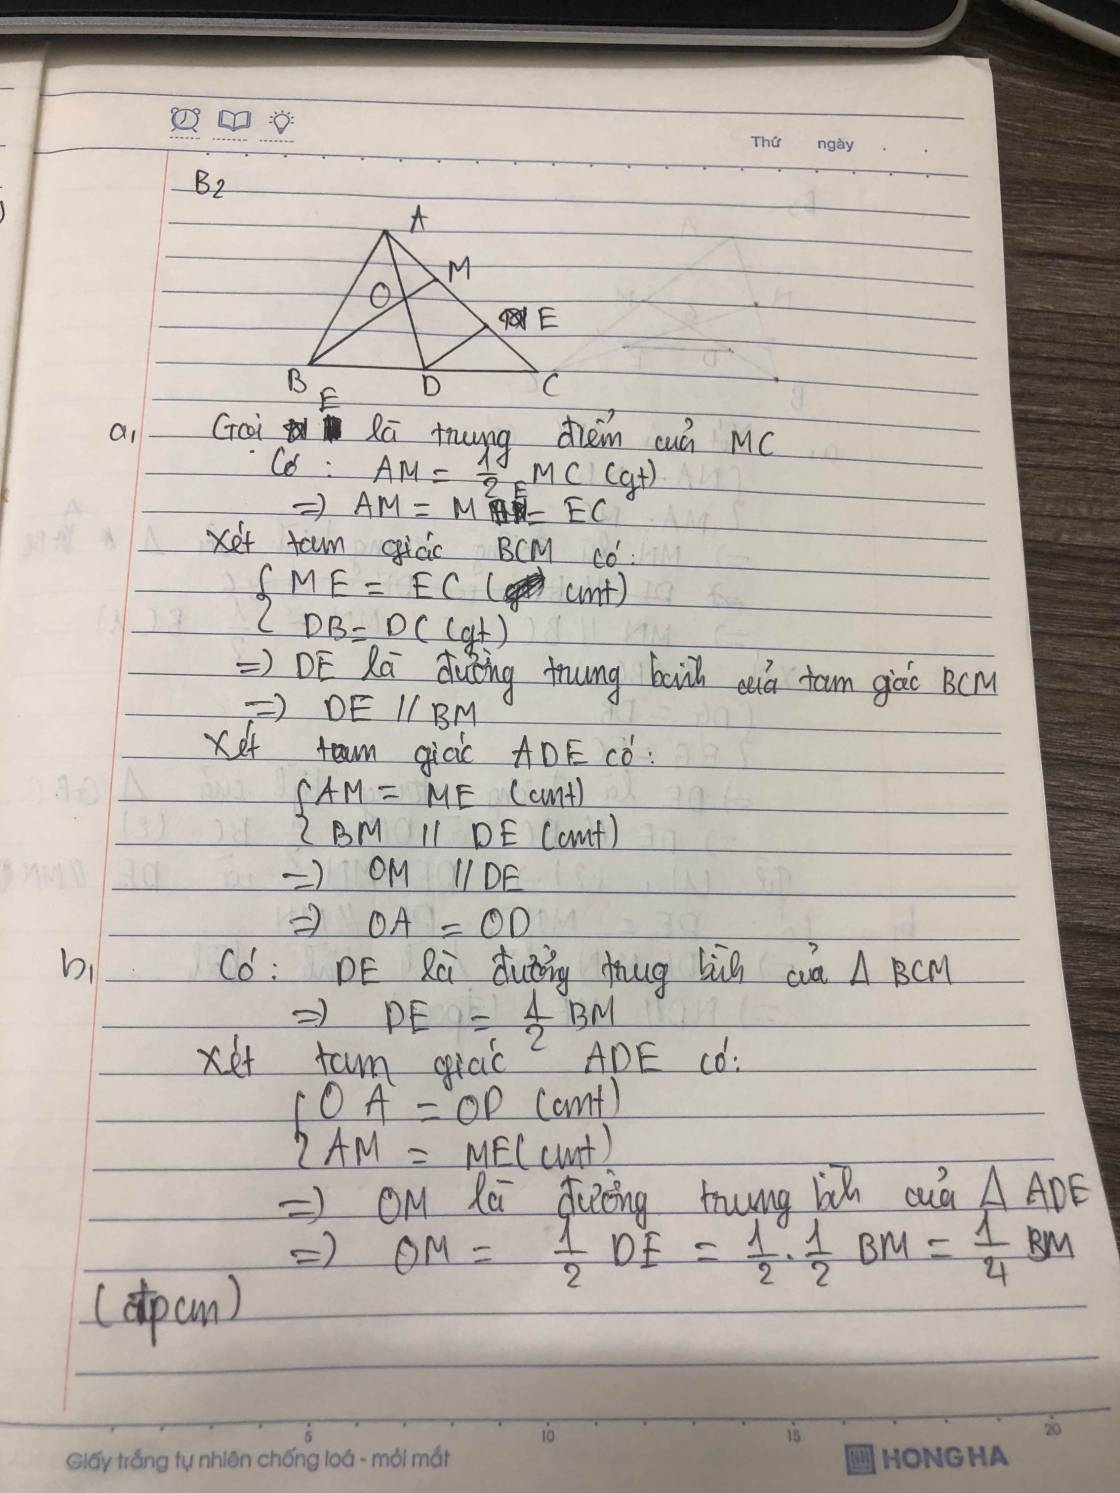 Thứ ngày . .
B2
A
M
O
E
B
D
C
E
a, Gọi là trung điểm cuả MC
Có : AM = 1/2 MC (gt)
=> AM = ME = EC
Xét tam giác BCM có:
{ ME = EC ( cmt)
DB = DC (gt)
=> DE là đường trung bình cuả tam giác BCM
=> DE // BM
Xét tam giác ADE có:
{ AM = ME (cmt)
BM // DE (cmt)
=> OM // DE
=> OA = OD
b, Có: DE là đường trug bìh cuả Δ BCM
=> DE = 1/2 BM
Xét tam giác ADE có:
{ OA = OD (cmt)
AM = ME (cmt)
=> OM là đường trung bìh cuả Δ ADE
=> OM = 1/2 DE = 1/2 . 1/2 BM = 1/4 BM
(đpcm)
5 10 15 20
Giấy trắng tự nhiên chống loá - mỏi mắt
HONG HA